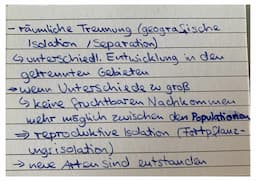 - räumliche Trennung (geografische
Isolation / Separation)
↳ unterschiedl. Entwicklung in den
getrennten Gebieten
→ wenn Unterschiede zu groß
↳ keine fruchtbaren Nachkommen
mehr möglich zwischen den Populationen
⇒ reproduktive Isolation (Fortpflanz-
ungsisolation)
→ neue Arten sind entstanden